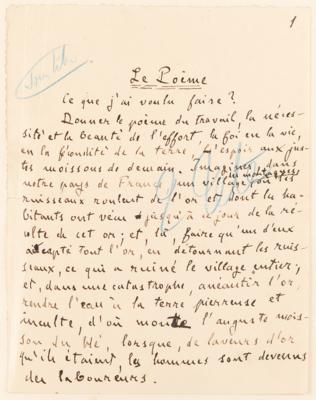 1
Le Poème
Ce que j'ai voulu faire?
Donner le poème du travail, la néces-
sité et la beauté de l'effort, la foi en la vie,
en la fécondité de la terre, l'espoir aux jus-
tes moissons de demain. Imaginez, dans
notre pays de France, un village où les
ruisseaux roulent de l'or dont les ha-
bitants ont vécu jusqu'à ce jour de la ré-
colte de cet or; et, là, faire qu'un d'eux
a capté tout l'or, en détournant les ruis-
seaux, ce qui a ruiné le village entier;
et, dans une catastrophe, anéantir l'or,
rendre l'eau à la terre pierreuse et
inculte, d'où monte l'auguste mois-
son du blé, lorsque, de laveurs d'or
qu'ils étaient, les hommes sont devenus
des laboureurs.